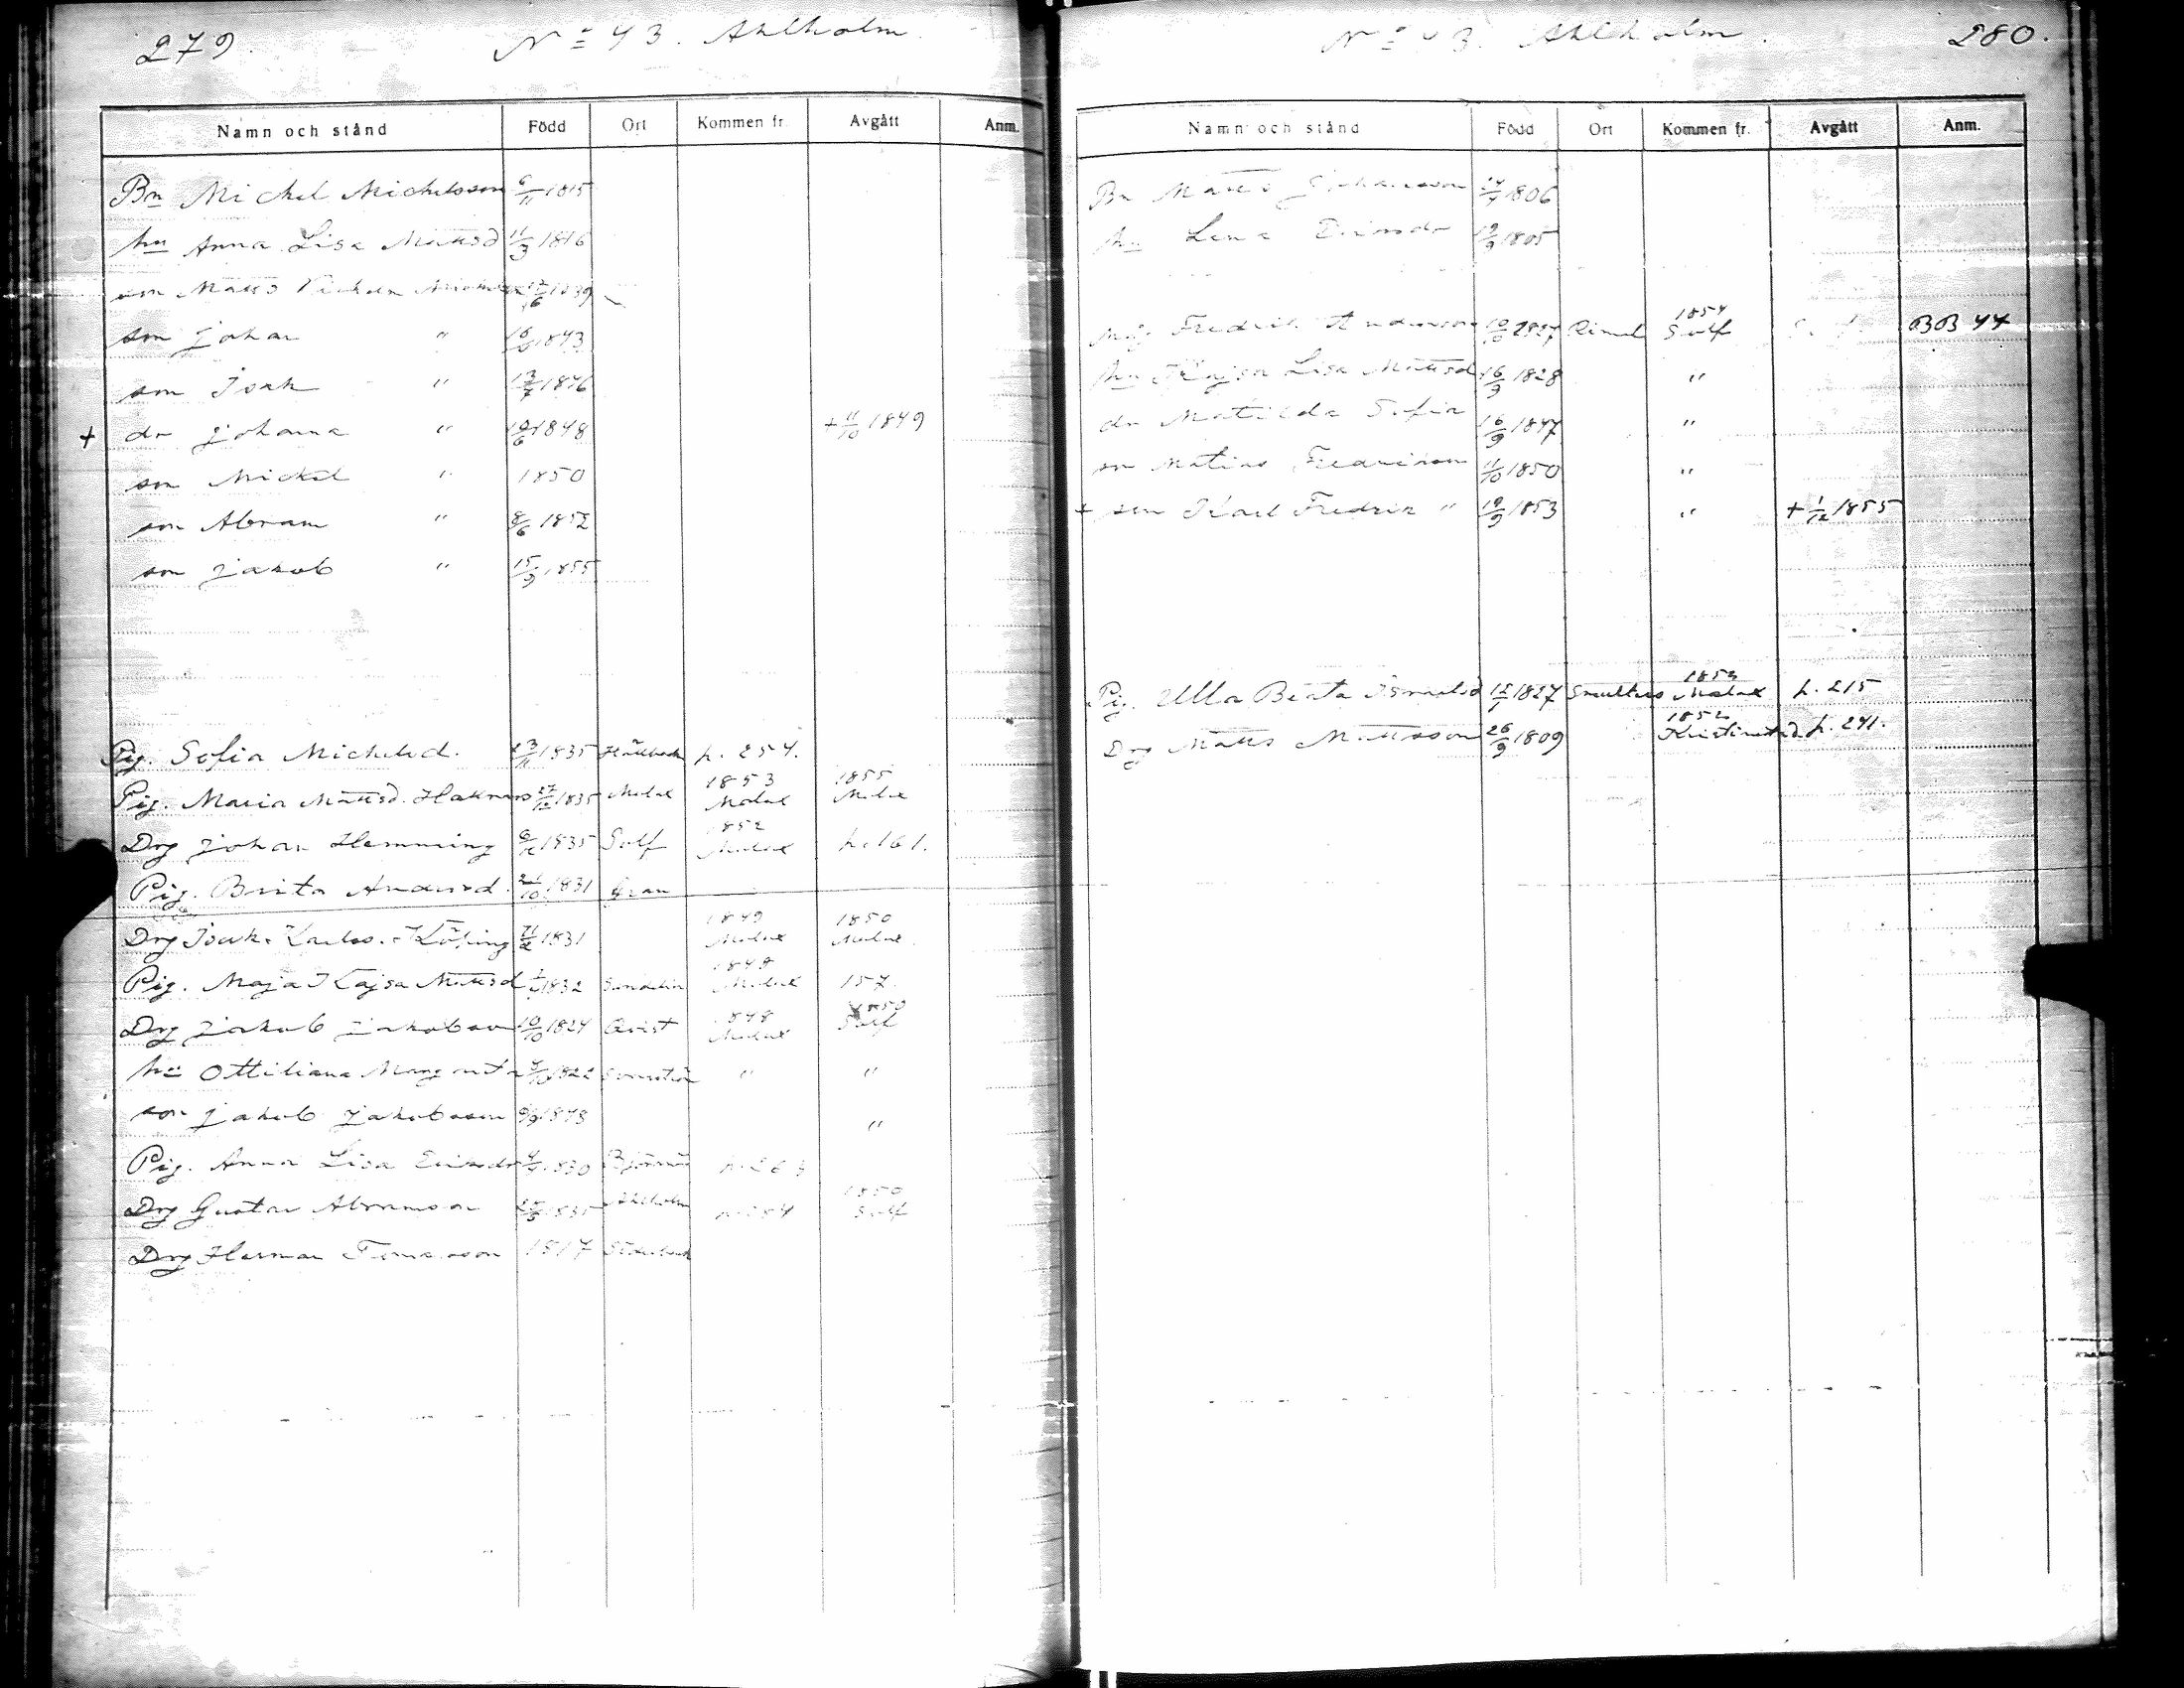 279. No 43. Ahlholm.
Namn och stånd Född Ort Kommen fr. Avgått Anm.
Bn Michel Michelsson 6/11 1815
hu Anna Lisa Mattsd 11/3 1816
son Matts 12/6 1839
son Johan " 1843
son Isak " 13/7 1846
+ dr Johanna " 10/6 1848 + 11/10 1849
son Mickel " 1850
son Abram " 8/6 1852
son Jakob " 15/9 1855
Pig. Sofia Michelsd. 23/11 1835 p. 254.
Pig. Maria Mattsd. 27/12 1835 Malax 1853 Malax 1855 Malax
Drg Johan Hemming 6/12 1835 Solf 1852 Malax p. 161.
Pig. Brita Andersd. 21/10 1831 Gran
Drg Isak Karlss. Köping 21/2 1831 1849 Malax 1850 Malax
Pig. Maja Kajsa Mattsd 1832 1849 Malax 157.
Drg Jakob Jakobsson 10/10 1824 Qvist 1848 Malax 1850 Solf
hu Ottiliana Margreta 1822 " "
son Jakob Jakobsson "
Pig. Anna Lisa Eriksdr 1830 p. 263
Drg Gustav Abramsson 1835 Ahlholm p. 284 1850 Solf
Drg Herman 1817
No 43. Ahlholm. 280.
Namn och stånd Född Ort Kommen fr. Avgått Anm.
Bn Matts Johansson 24/7 1806
hu Lena Eriksdr 19/9 1805
Måg Fredrik Andersson 10/10 1827 Rimal 1854 Solf BB 44
hu Kajsa Lisa Mattsd 16/9 1828 "
dr Matilda Sofia 16/9 1847 "
son Matias Fredriksson 11/10 1850 "
+ son Karl Fredrik " 19/9 1853 " + 1/12 1855
Pig. Ulla Beata Ismaelsd 12/1 1827 Malax p. 215
Drg Matts Mattsson 26/9 1809 1852 Kristinestad p. 241.